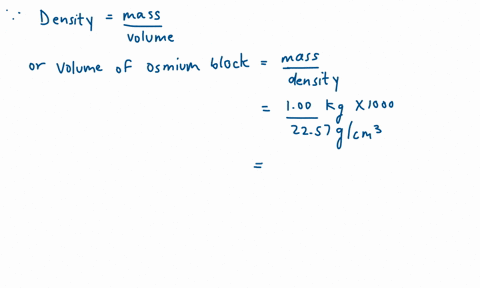 ∵ Density = mass
volume
or volume of osmium block = mass
density
= 1.00 kg × 1000
22.57 g/cm³
=